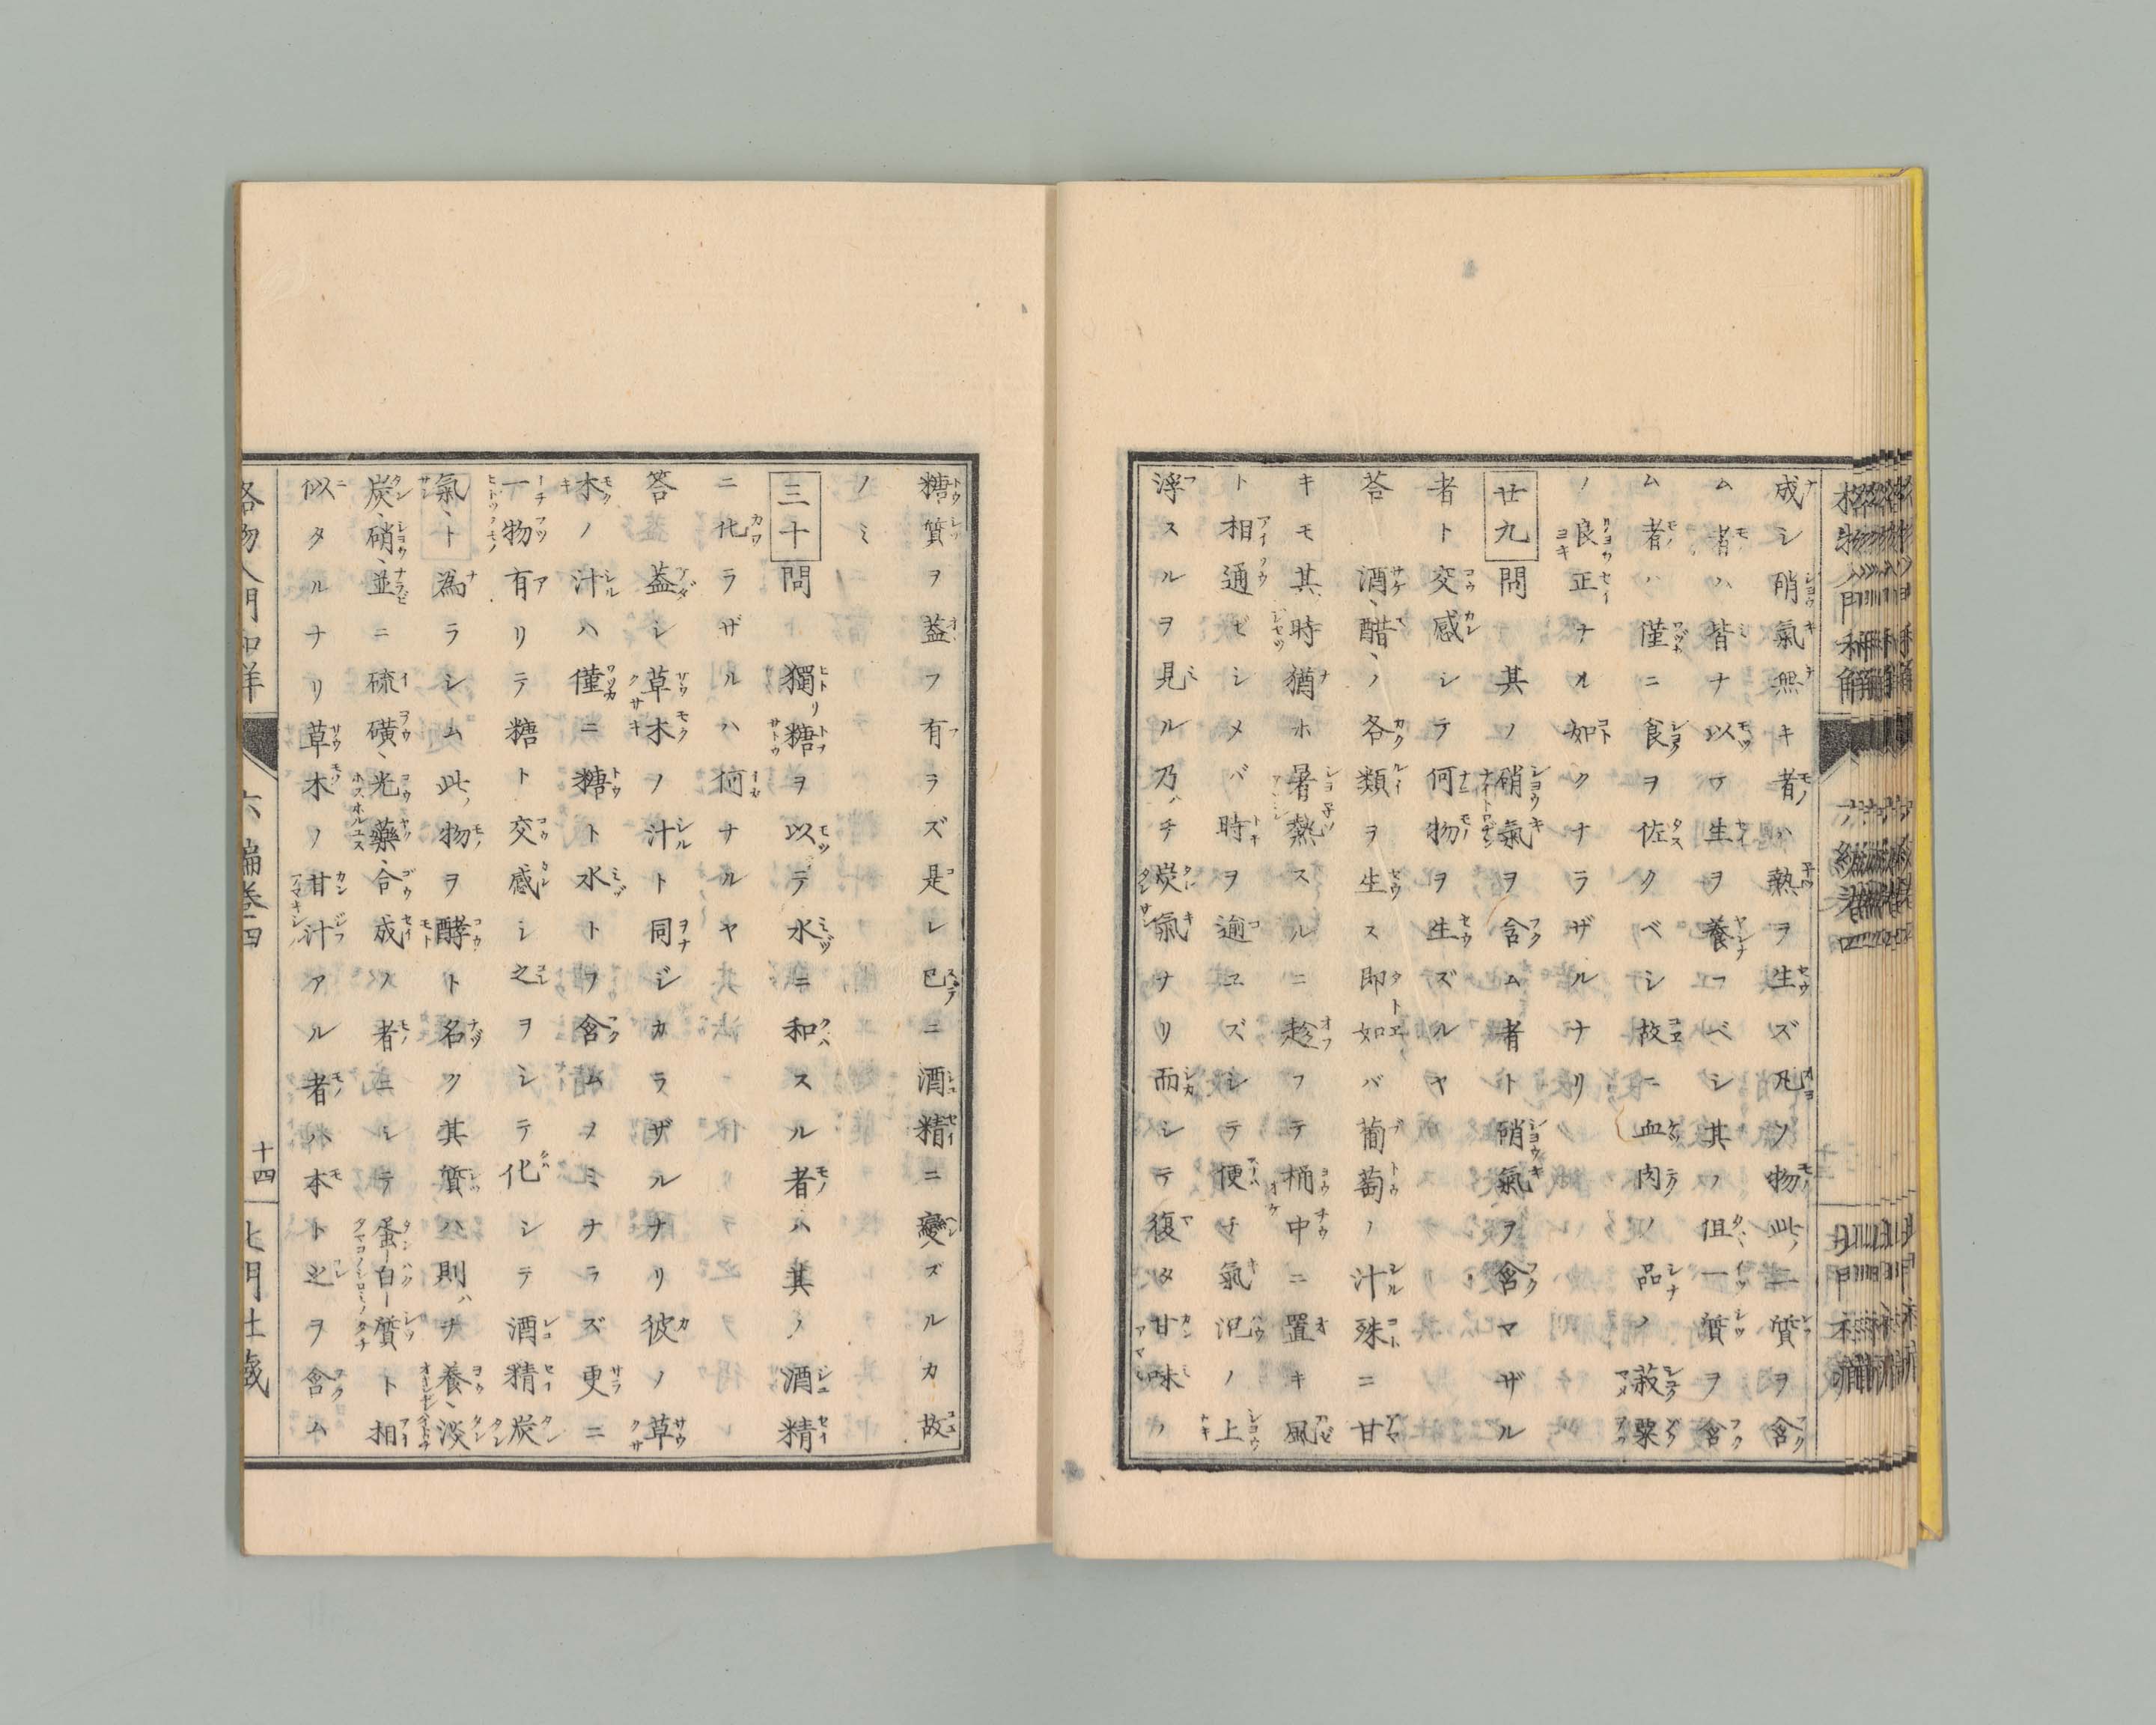 成シ硝氣無キ者ハ熱ヲ生ズ凡ソ物此ノ二質ヲ含
ム者ハ皆ナ以テ生ヲ養フベシ其ノ但一質ヲ含
ム者ハ僅ニ食ヲ佐クベシ故ニ血肉ノ品ノ菽粟
ノ良正ナル如クナラザルナリ
廿九問 其ノ硝氣ヲ含ム者ト硝氣ヲ含マザル
者ト交感シテ何物ヲ生ズルヤ
荅 酒、醋、ノ各類ヲ生ス即如バ葡萄ノ汁殊ニ甘
キモ其時猶ホ暑熱スルニ趁フテ桶中ニ置キ風
ト相通ゼシメバ時ヲ逾ユズシテ便チ氣泡ノ上
浮スルヲ見ル乃チ炭氣ナリ而シテ復タ甘味ノ
糖質ヲ蓋フ有ラズ是レ已ニ酒精ニ變ズルカ故
ノミ
三十問 獨糖ヲ以テ水ニ和スル者ハ其ノ酒精
ニ化ラザルハ何ナルヤ
答 蓋シ草木ノ汁ト同ジカラザルナリ彼ノ草
木ノ汁ハ僅ニ糖ト水トヲ含ムヲミナラズ更ニ
一物有リテ糖ト交感シ之ヲシテ化シテ酒精炭
氣、ト為ラシム此ノ物ヲ酵ト名ツク其質ハ則ハチ養、淡
炭、硝、並ニ硫礦、光藥、合成ノ者ニシテ蛋白質ト相
似タルナリ草木ノ甘汁アル者ハ本ト之ヲ含ム
格物入門和解 六編卷四 十四 北門社藏